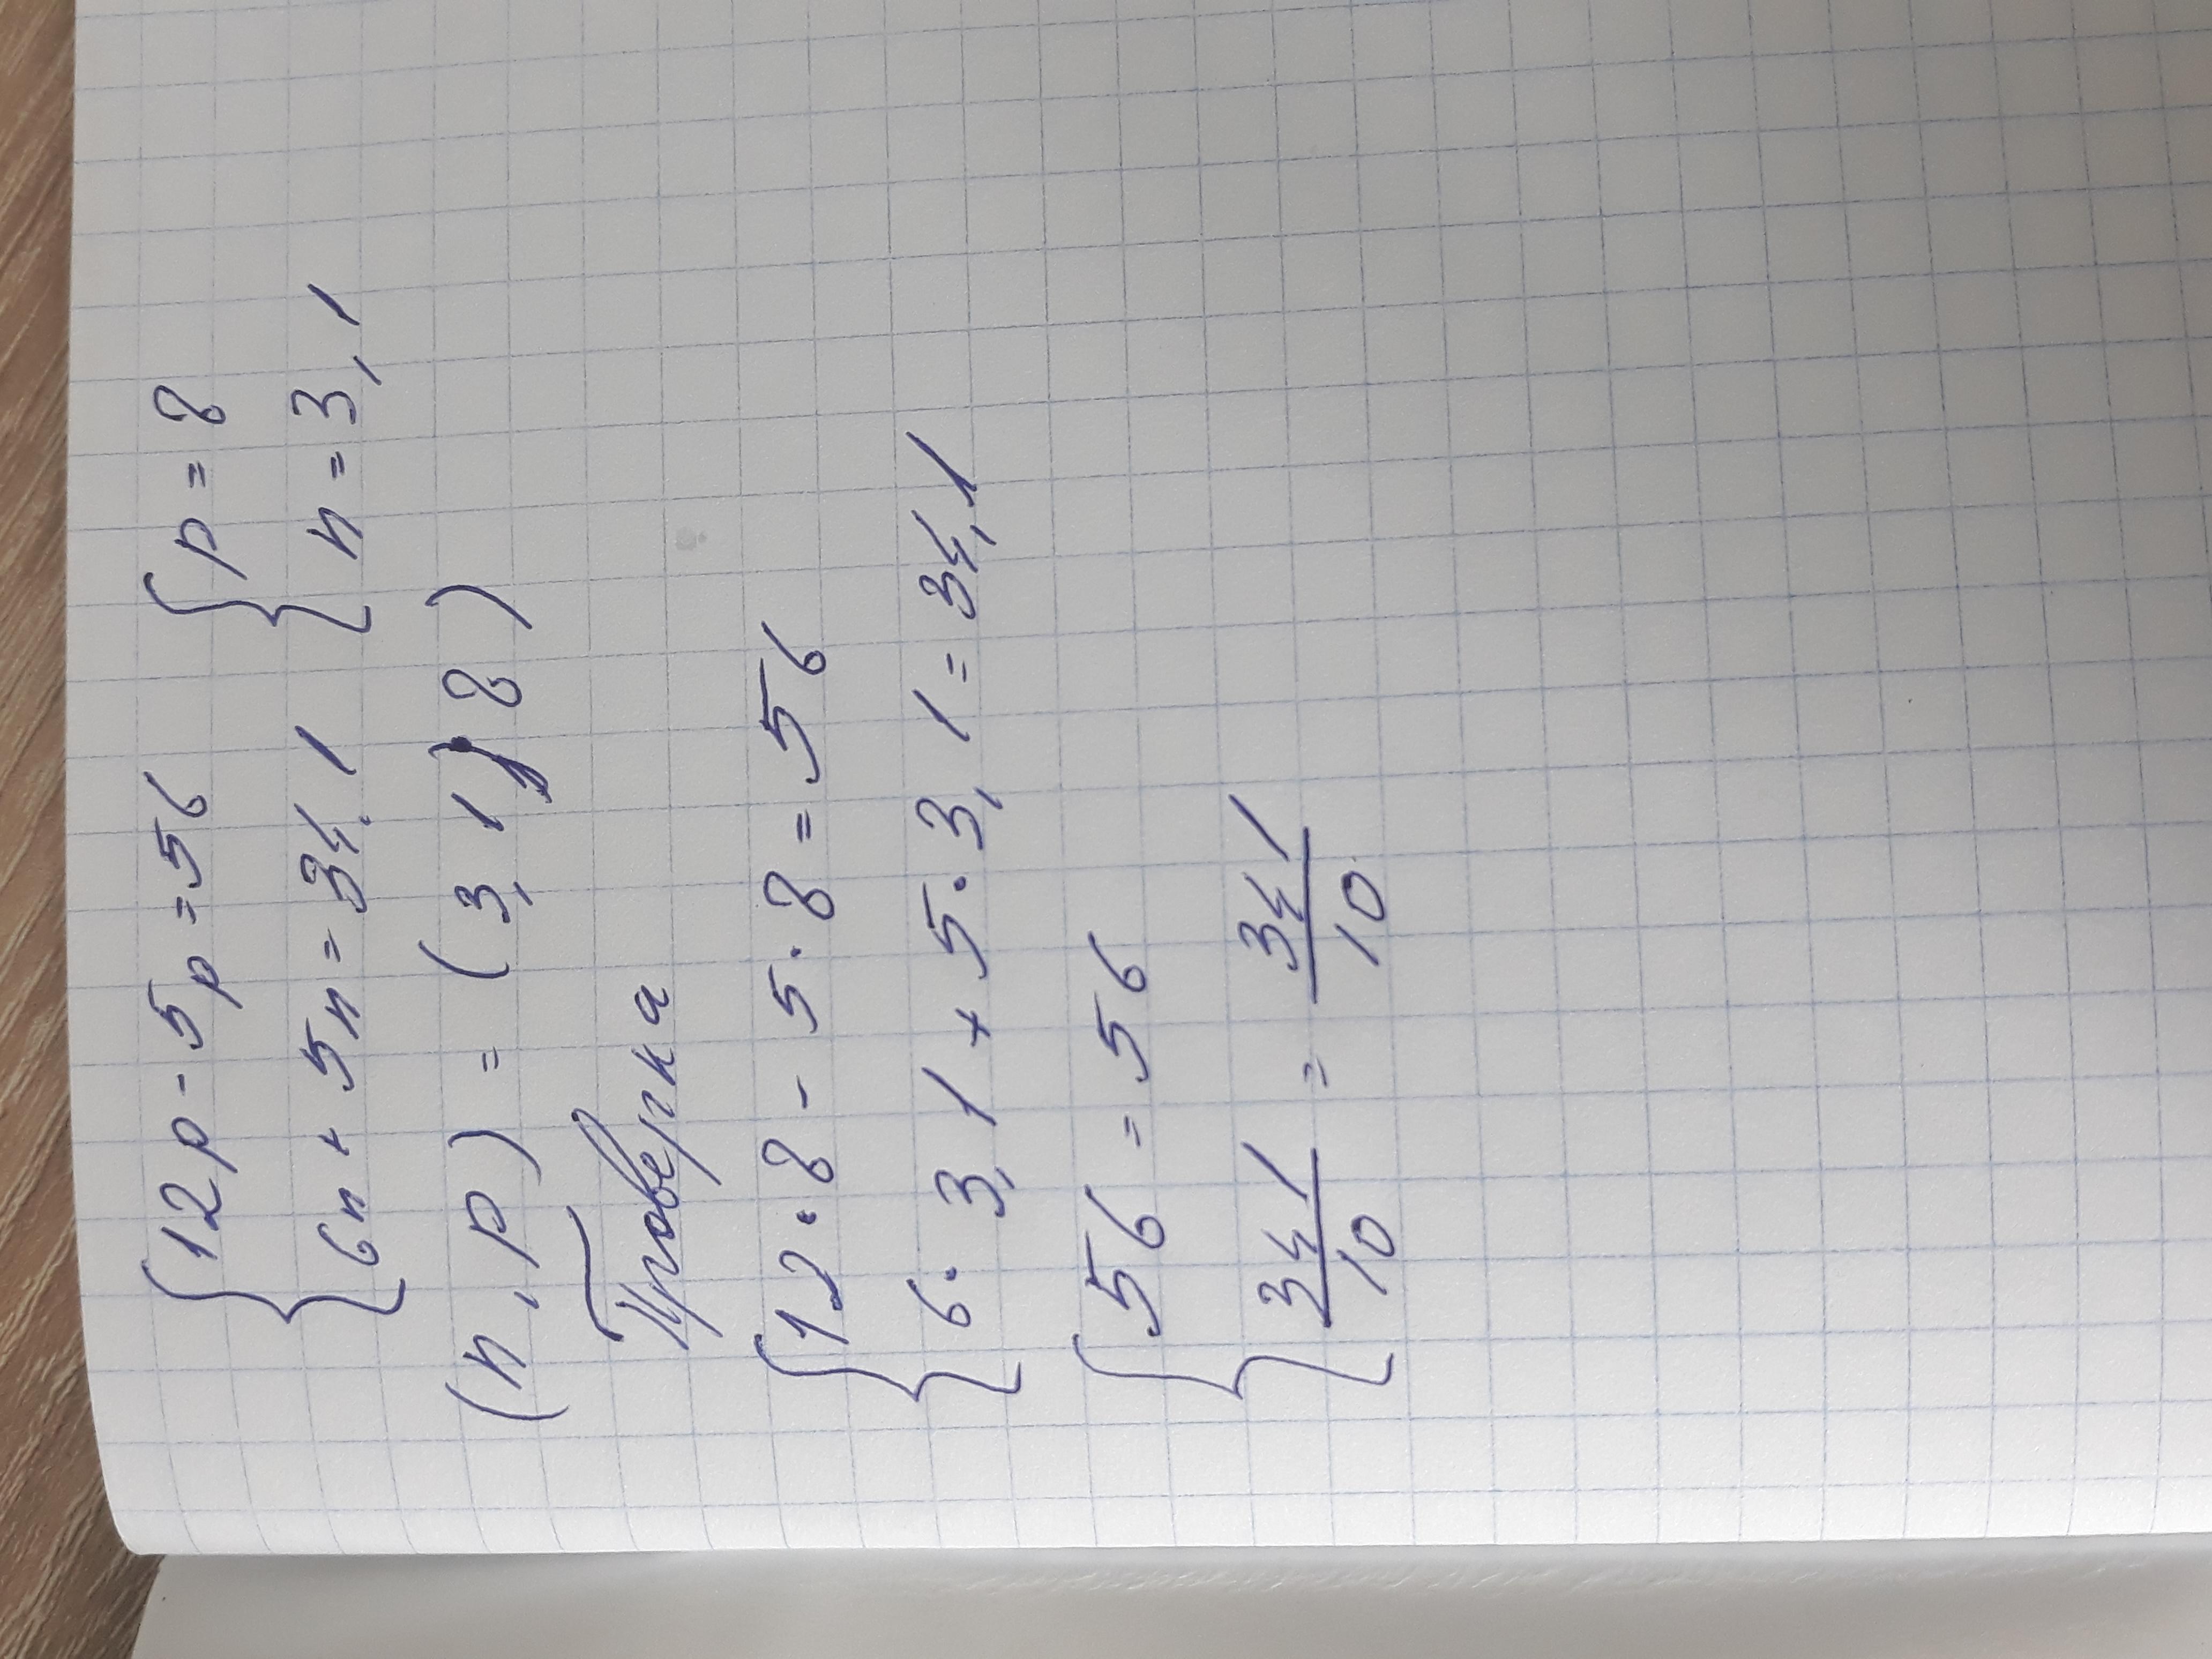 {12p - 5p = 56 {p = 8
{6n + 5n = 34.1 {n = 3,1
(n, p) = (3,1; 8)
Проверка
{12 · 8 - 5 · 8 = 56
{6 · 3,1 + 5 · 3,1 = 34,1
{56 = 56
{341/10 = 341/10